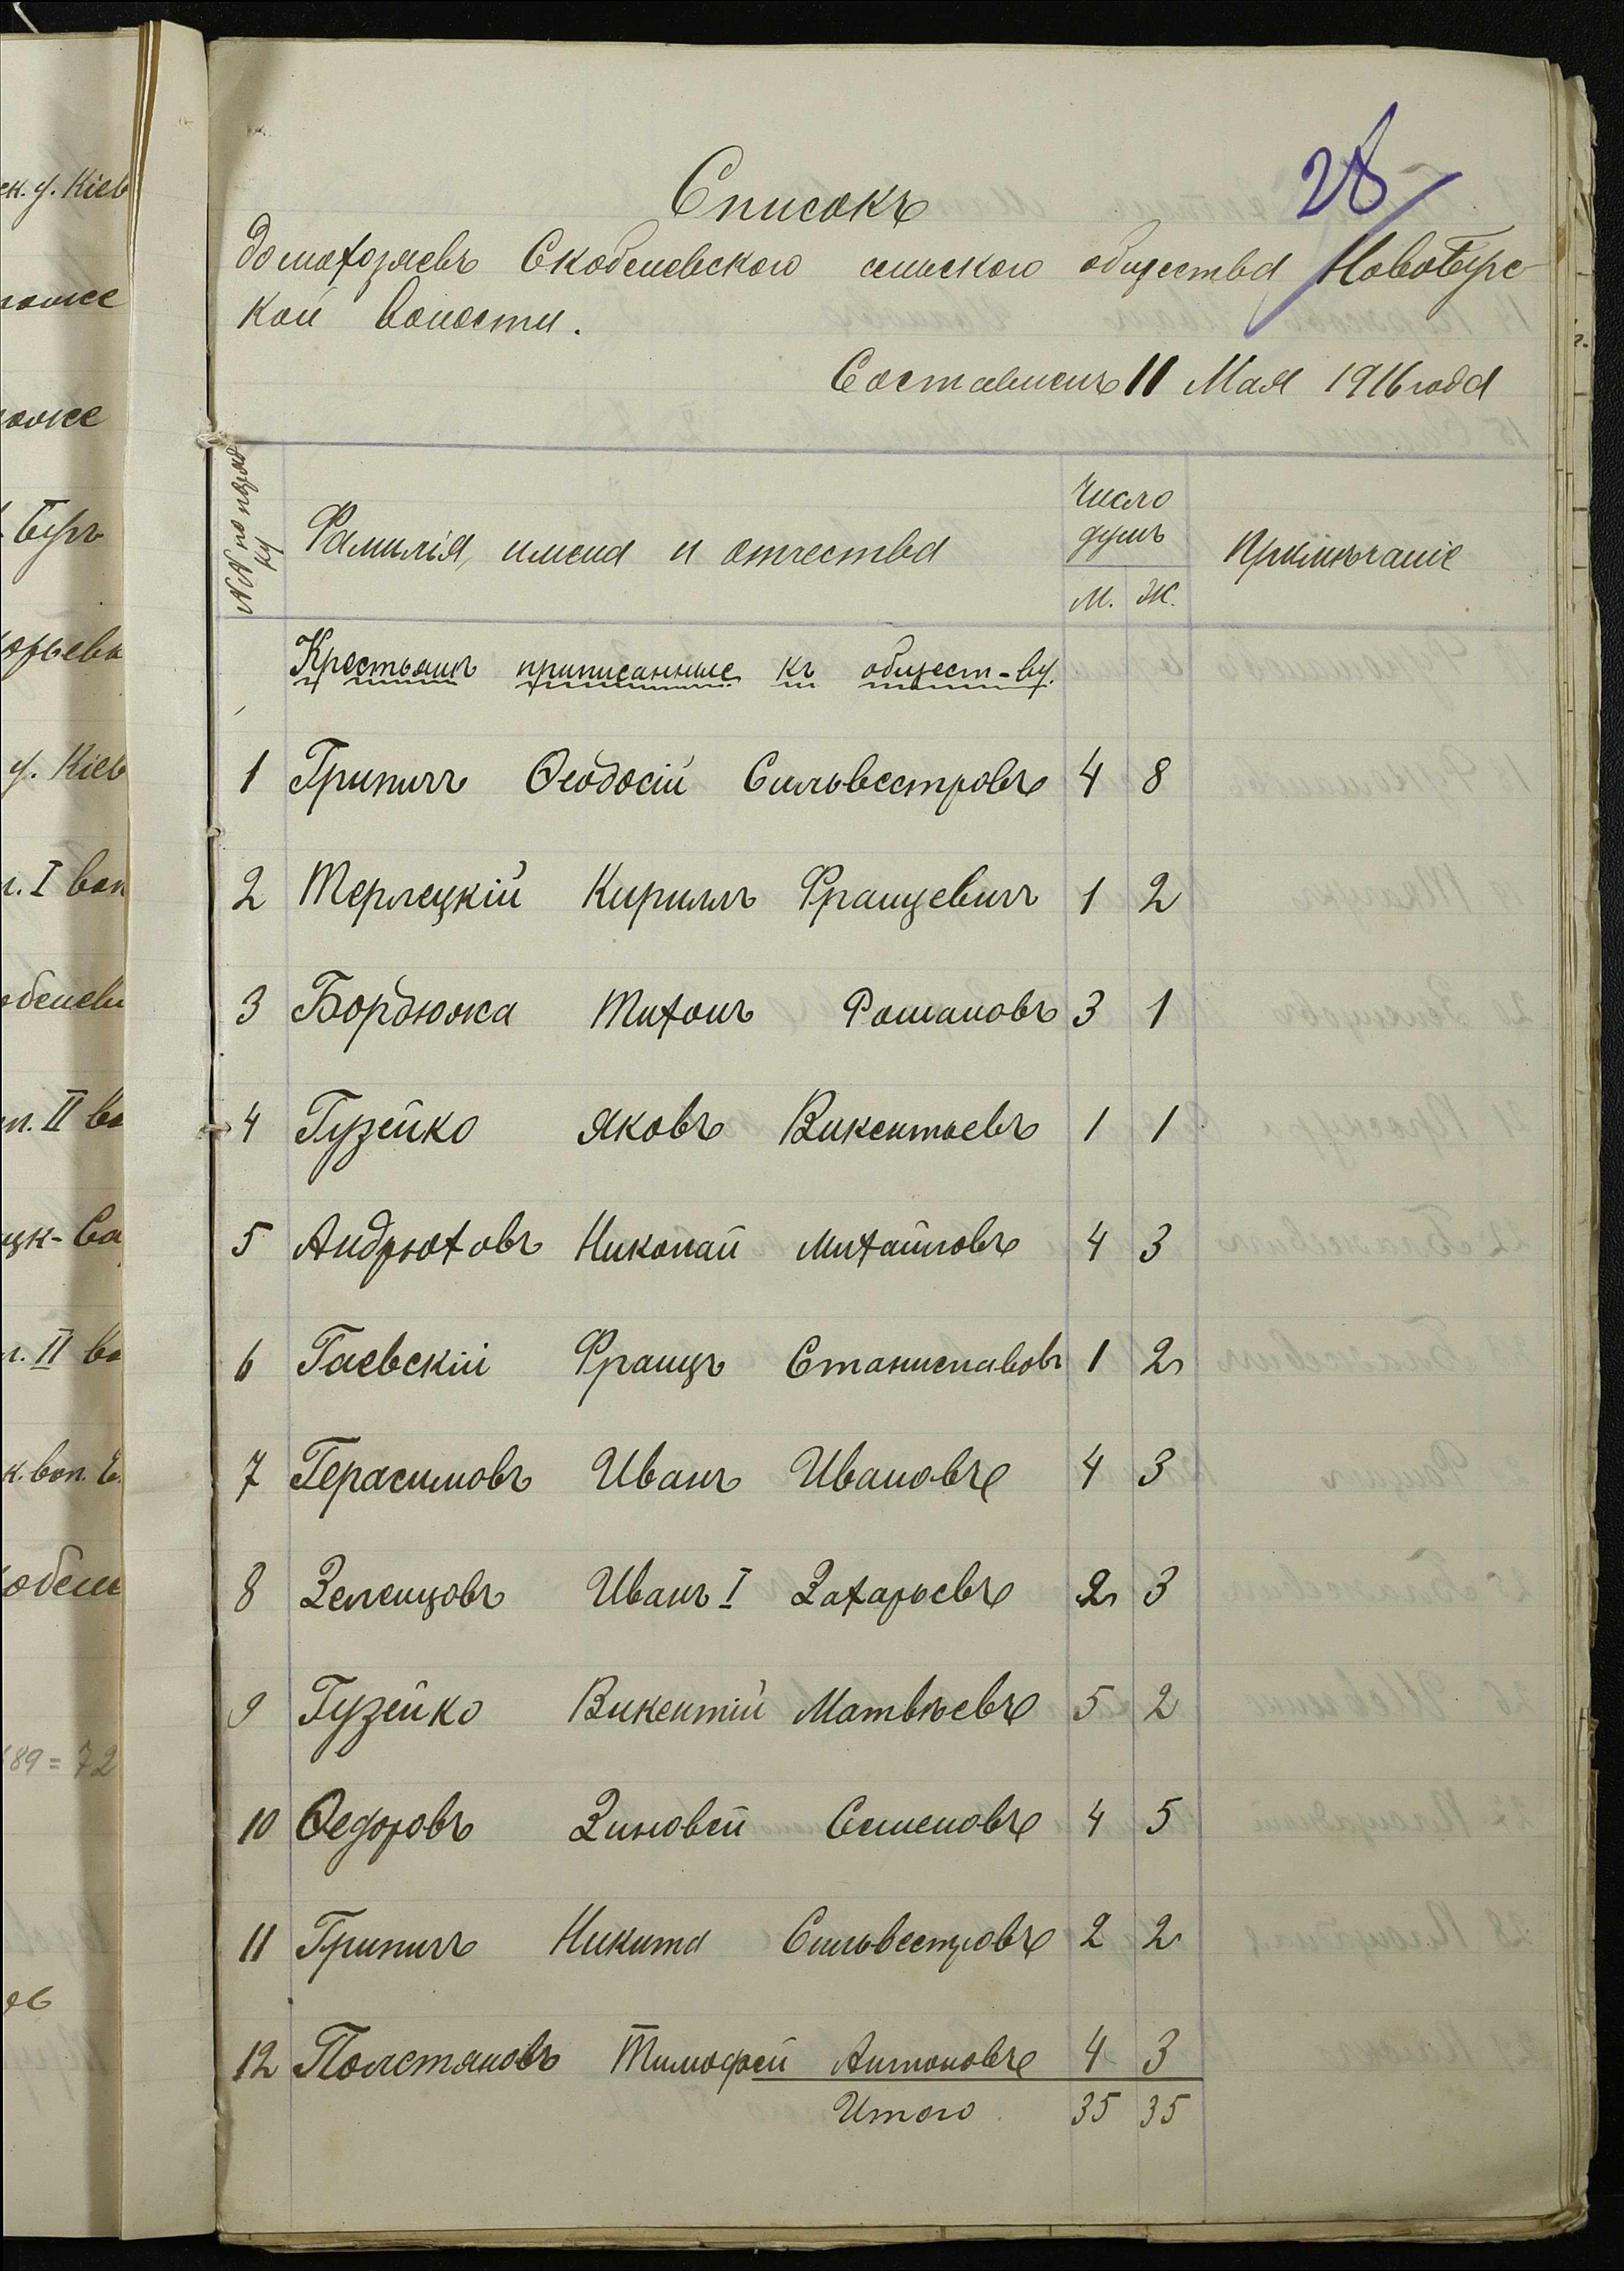 ек. у. Кіев
28
Списокъ
домохозяевъ Скобелевского сельского общества НовоБурс-
кой волости.
Составленъ 11 Мая 1916 года
№№ по поряд
ку
Фамилія, имена и отчества
Число
душъ
Примѣчаніе
М. Ж.
Крестьянъ приписанные къ общест-ву.
1 Грипичъ Ѳеодосій Сильвестровъ 4 8
2 Терлецкій Кириллъ Францевичъ 1 2
3 Бордюжа Тихонъ Романовъ 3 1
4 Гузейко Яковъ Викентьевъ 1 1
5 Андрюховъ Николай Михайловъ 4 3
6 Гаевскій Францъ Станиславовъ 1 2
7 Герасимовъ Иванъ Ивановъ 4 3
8 Зеленцовъ Иванъ I Захарьевъ 2 3
9 Гузейко Викентій Матвѣевъ 5 2
10 Ѳедоровъ Зиновей Семеновъ 4 5
11 Грипичъ Никита Сильвестровъ 2 2
12 Полстяновъ Тимофей Антоновъ 4 3
Итого 35 35
у. Кіев
г. I вол
89 = 72